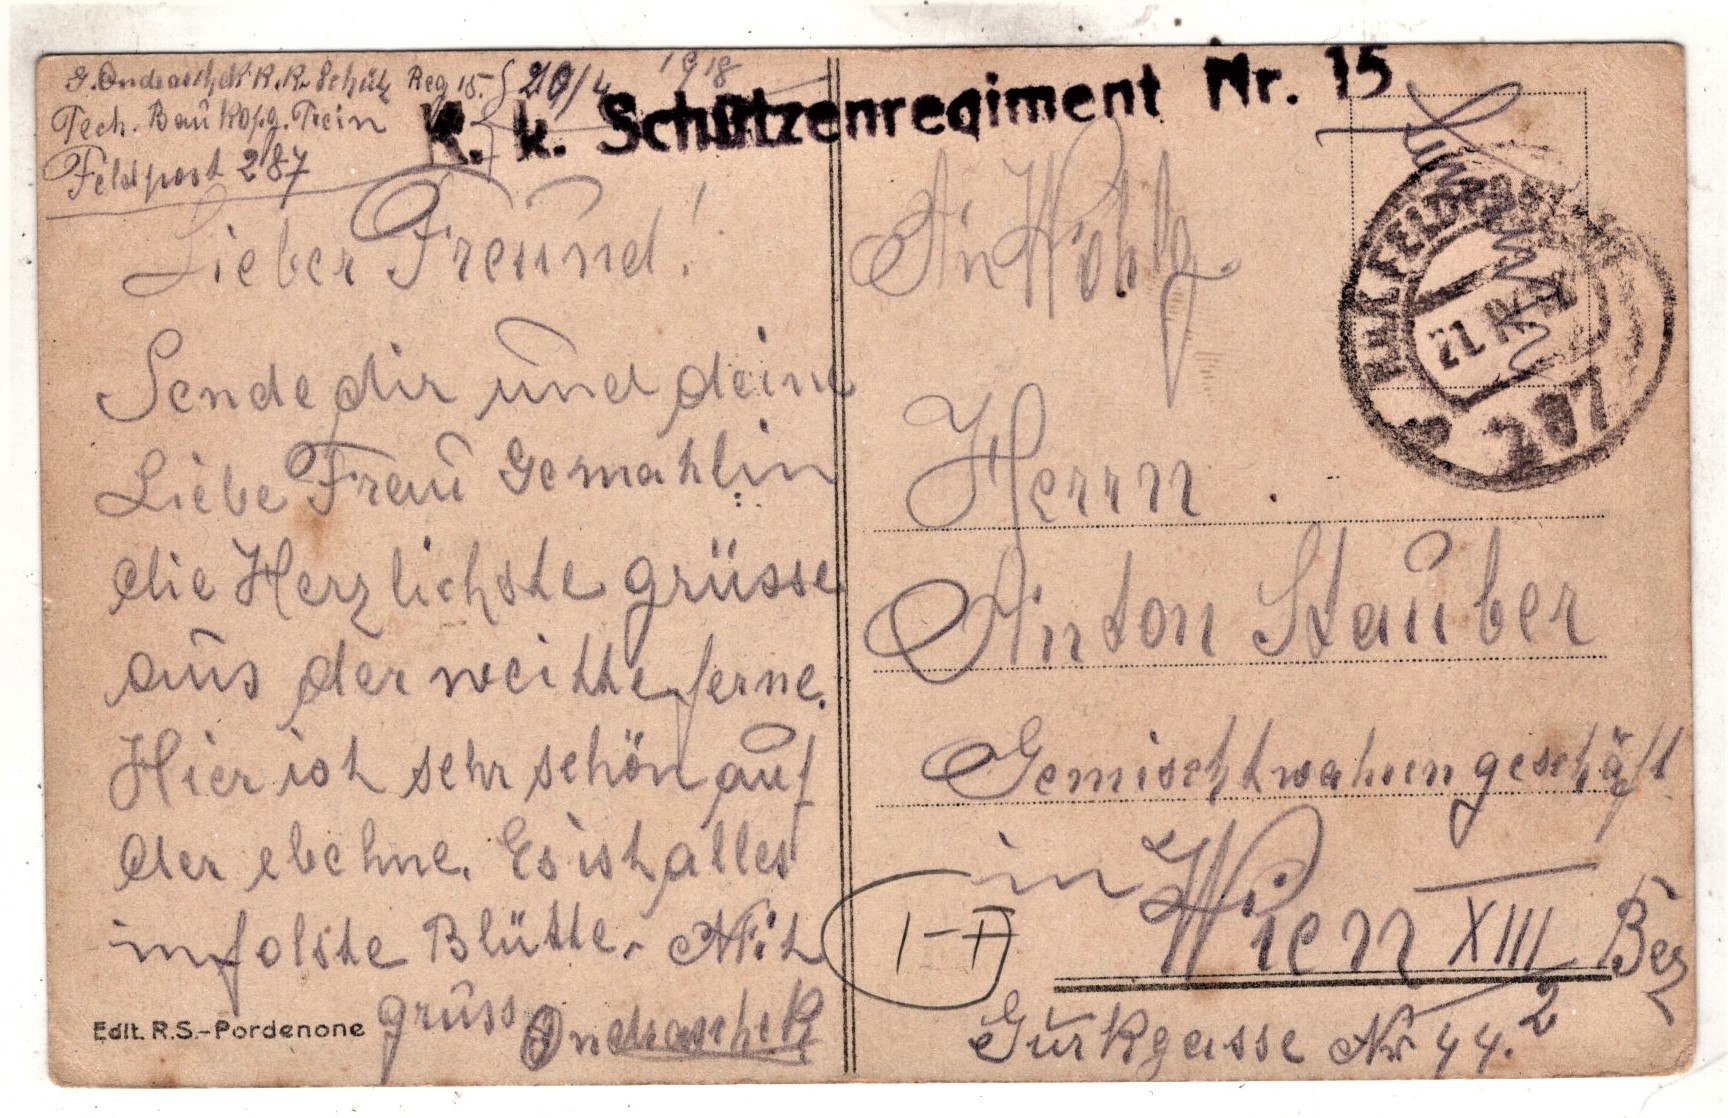 J. Ondraschek K.K. Schütz Reg 15. 20/4 1918
Tech. Bau Kopg. Trein
Feldpost 287
K. k. Schützenregiment Nr. 15
Lieber Freund!
Sende dir und deine
Liebe Frau Gemahlin
die Herzlichste grüsse
aus der weitte ferne.
Hier ist sehr schön auf
der ebehne. Es ist alles
im folste Blütte. Mit
grüss Ondraschek
Edit. R.S.-Pordenone
K.u.K. FELDPOSTAMT
21. IV. 
287
An Wohlg
Herrn
Anton Stauber
Gemischtwahrengeschäft
in Wien XIII Bez
I-II
Gurkgasse Nr 44. 2